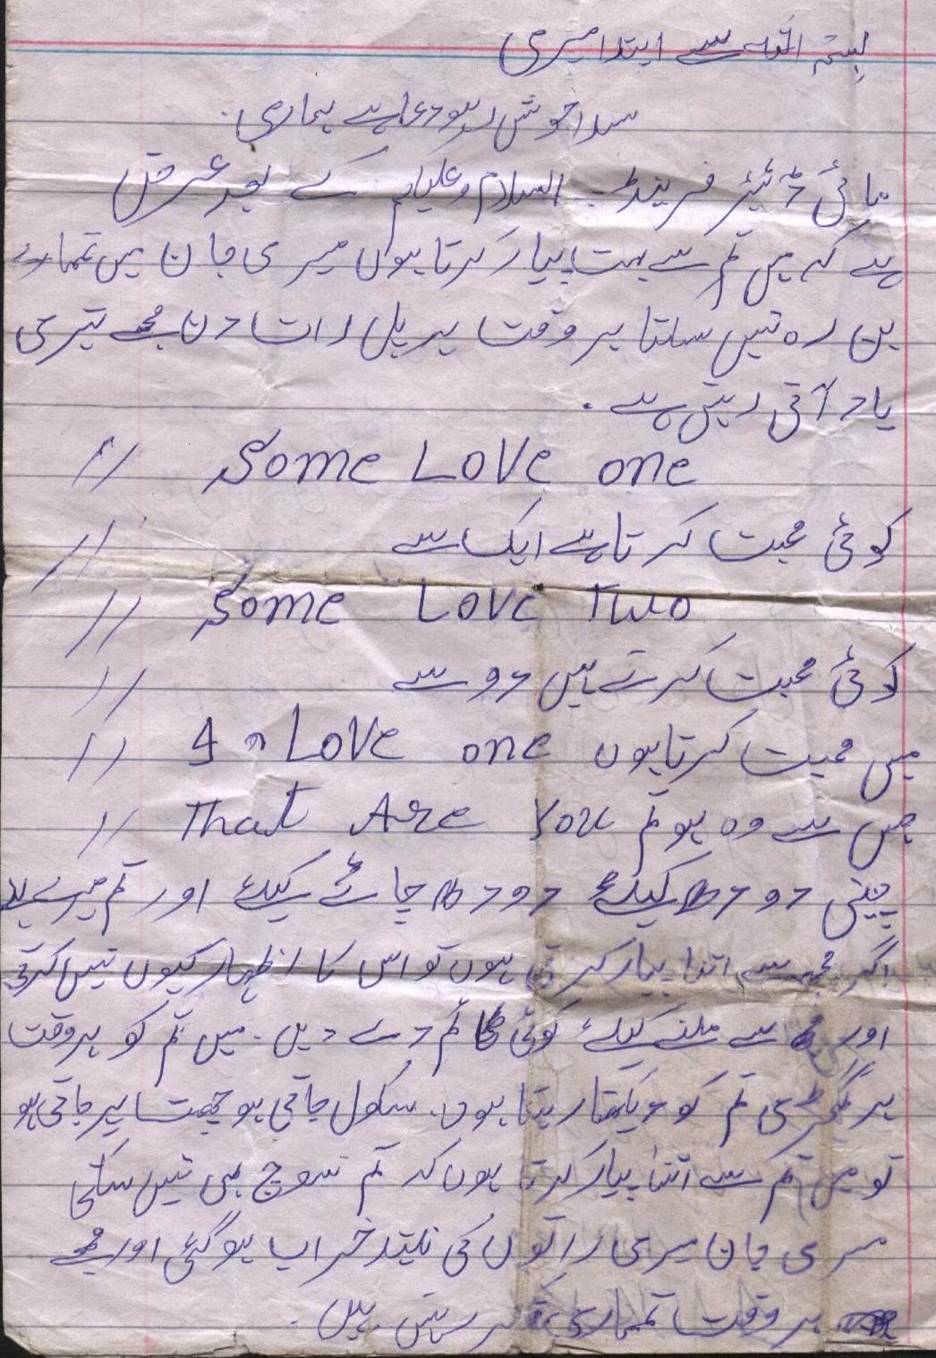 بسم اللہ سے ابتدا میری
سدا خوش رہو دعا ہے ہماری.
مائی ڈئیر فرینڈ. السلام وعلیکم کے بعد عرض
ہے کہ میں تم سے بہت پیار کرتا ہوں میری جان میں تمہارے
بن رہ نہیں سکتا ہر وقت ہر پل رات دن مجھے تیری
یاد آتی رہتی ہے.
Some Love one //
کوئی محبت کرتا ہے ایک سے //
Some Love Two //
کوئی محبت کرتے ہیں دو سے //
میں محبت کرتا ہوں I Love one //
جس سے وہ ہو تم That Are You //
پیتی دودھ کیلئے دودھ چائے کیلئے اور تم میرے
اگر مجھ سے اتنا پیار کرتی ہوں تو اس کا اظہار کیوں نہیں کرتی
اور مجھ سے ملنے کیلئے کوئی ٹائم دے دیں. میں تم کو ہر وقت
ہر گھڑی تم کو دیکھتا رہتا ہوں. سکول جاتی ہو چھت پر جاتی ہو
تو میں تم سے اتنا پیار کرتا ہوں کہ تم سوچ بھی نہیں سکتی
میری جان میری راتوں کی نیند خراب ہو گئی اور مجھے
ہر وقت تمہاری رہتی ہیں.